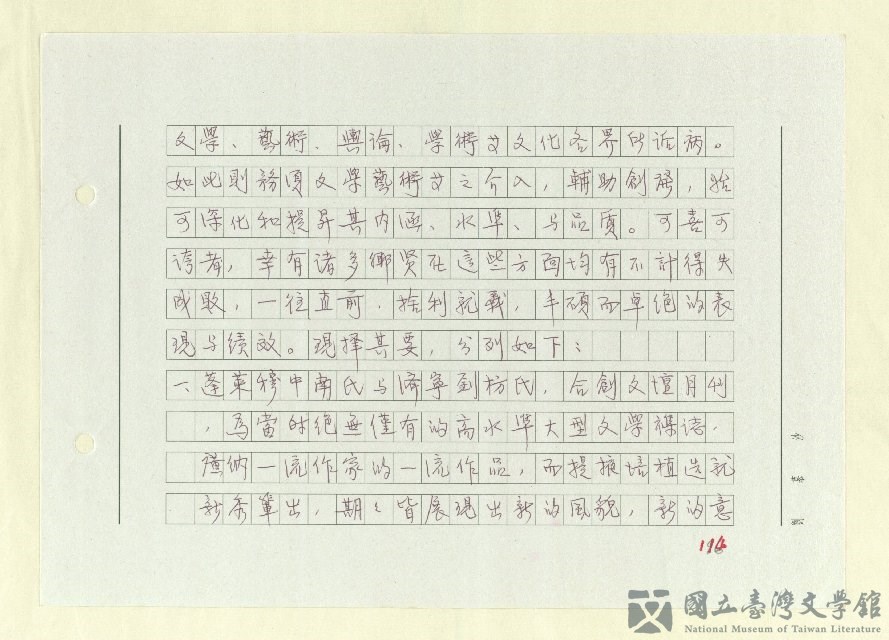 文學、藝術、輿論、學術文文化各界所詬病。
如此則務須文學藝術文之介入，輔助創發，始
可深化和提昇其內涵、水準、与品質。可喜可
誇者，幸有諸多鄉贤在這些方面均有不計得失
成敗，一往直前，捨利就義，丰碩而卓绝的表
現与績效。現择其要，分列如下：
一、蓬萊穆中南氏与濟寧劉枋氏，合創文壇月刊
，為當时绝無僅有的高水準大型文學雜誌，
廣納一流作家的一流作品，而提掖培植造就
新秀輩出，期々皆展現出新的風貌，新的意
194
國立臺灣文學館
National Museum of Taiwan Literature